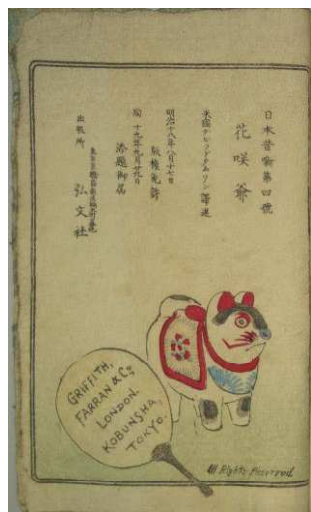 日本昔噺第四號
花咲爺
米國ダビッドタムソン譯述
明治十八年八月十七日
版權免許
同十九年九月廿九日
添題御届
出版所
弘文社
GRIFFITH,
FARRAN & Co,
LONDON.
KOBUNSHA,
TOKYO.
All Rights Reserved.